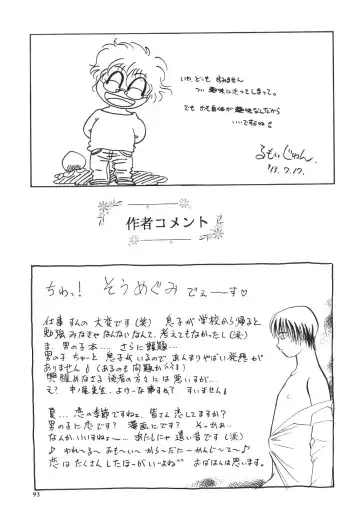 いや、どーも すみません
つい 趣味に走ってしまって。
でも ホモ自体が趣味なんだから
いいですよね!
るもいじゅん.
'93.7.17.
作者コメント
ちわっ! そうめぐみ でぇーーす♡
仕事 すんの 大変です(笑) 息子が 学校から帰ると
勉強 みなきゃ なんないなんて、考えてもなかったし(笑)
ま、男の子本…… さらに
男の子 ちゃーと 息子がいるので あんまりやばい発想が
ありません! (あるのも 問題か…)
興醒めなさる 読者の方々には 悪いですが…
え? 中尾先生、よけーな事ですか? すいません!
夏… 恋の季節ですねェ、皆さん 恋してますか?
男の子に 恋です? 漫画にです? そっかぁ…
なんか、いいですねェ…… あたしにゃ 遠い昔です(笑)
♪われ〜る〜 おも〜い〜 から〜だに〜 かんじ〜て〜♪
恋は たくさん したほーが いーよね おばはんは思います。
93